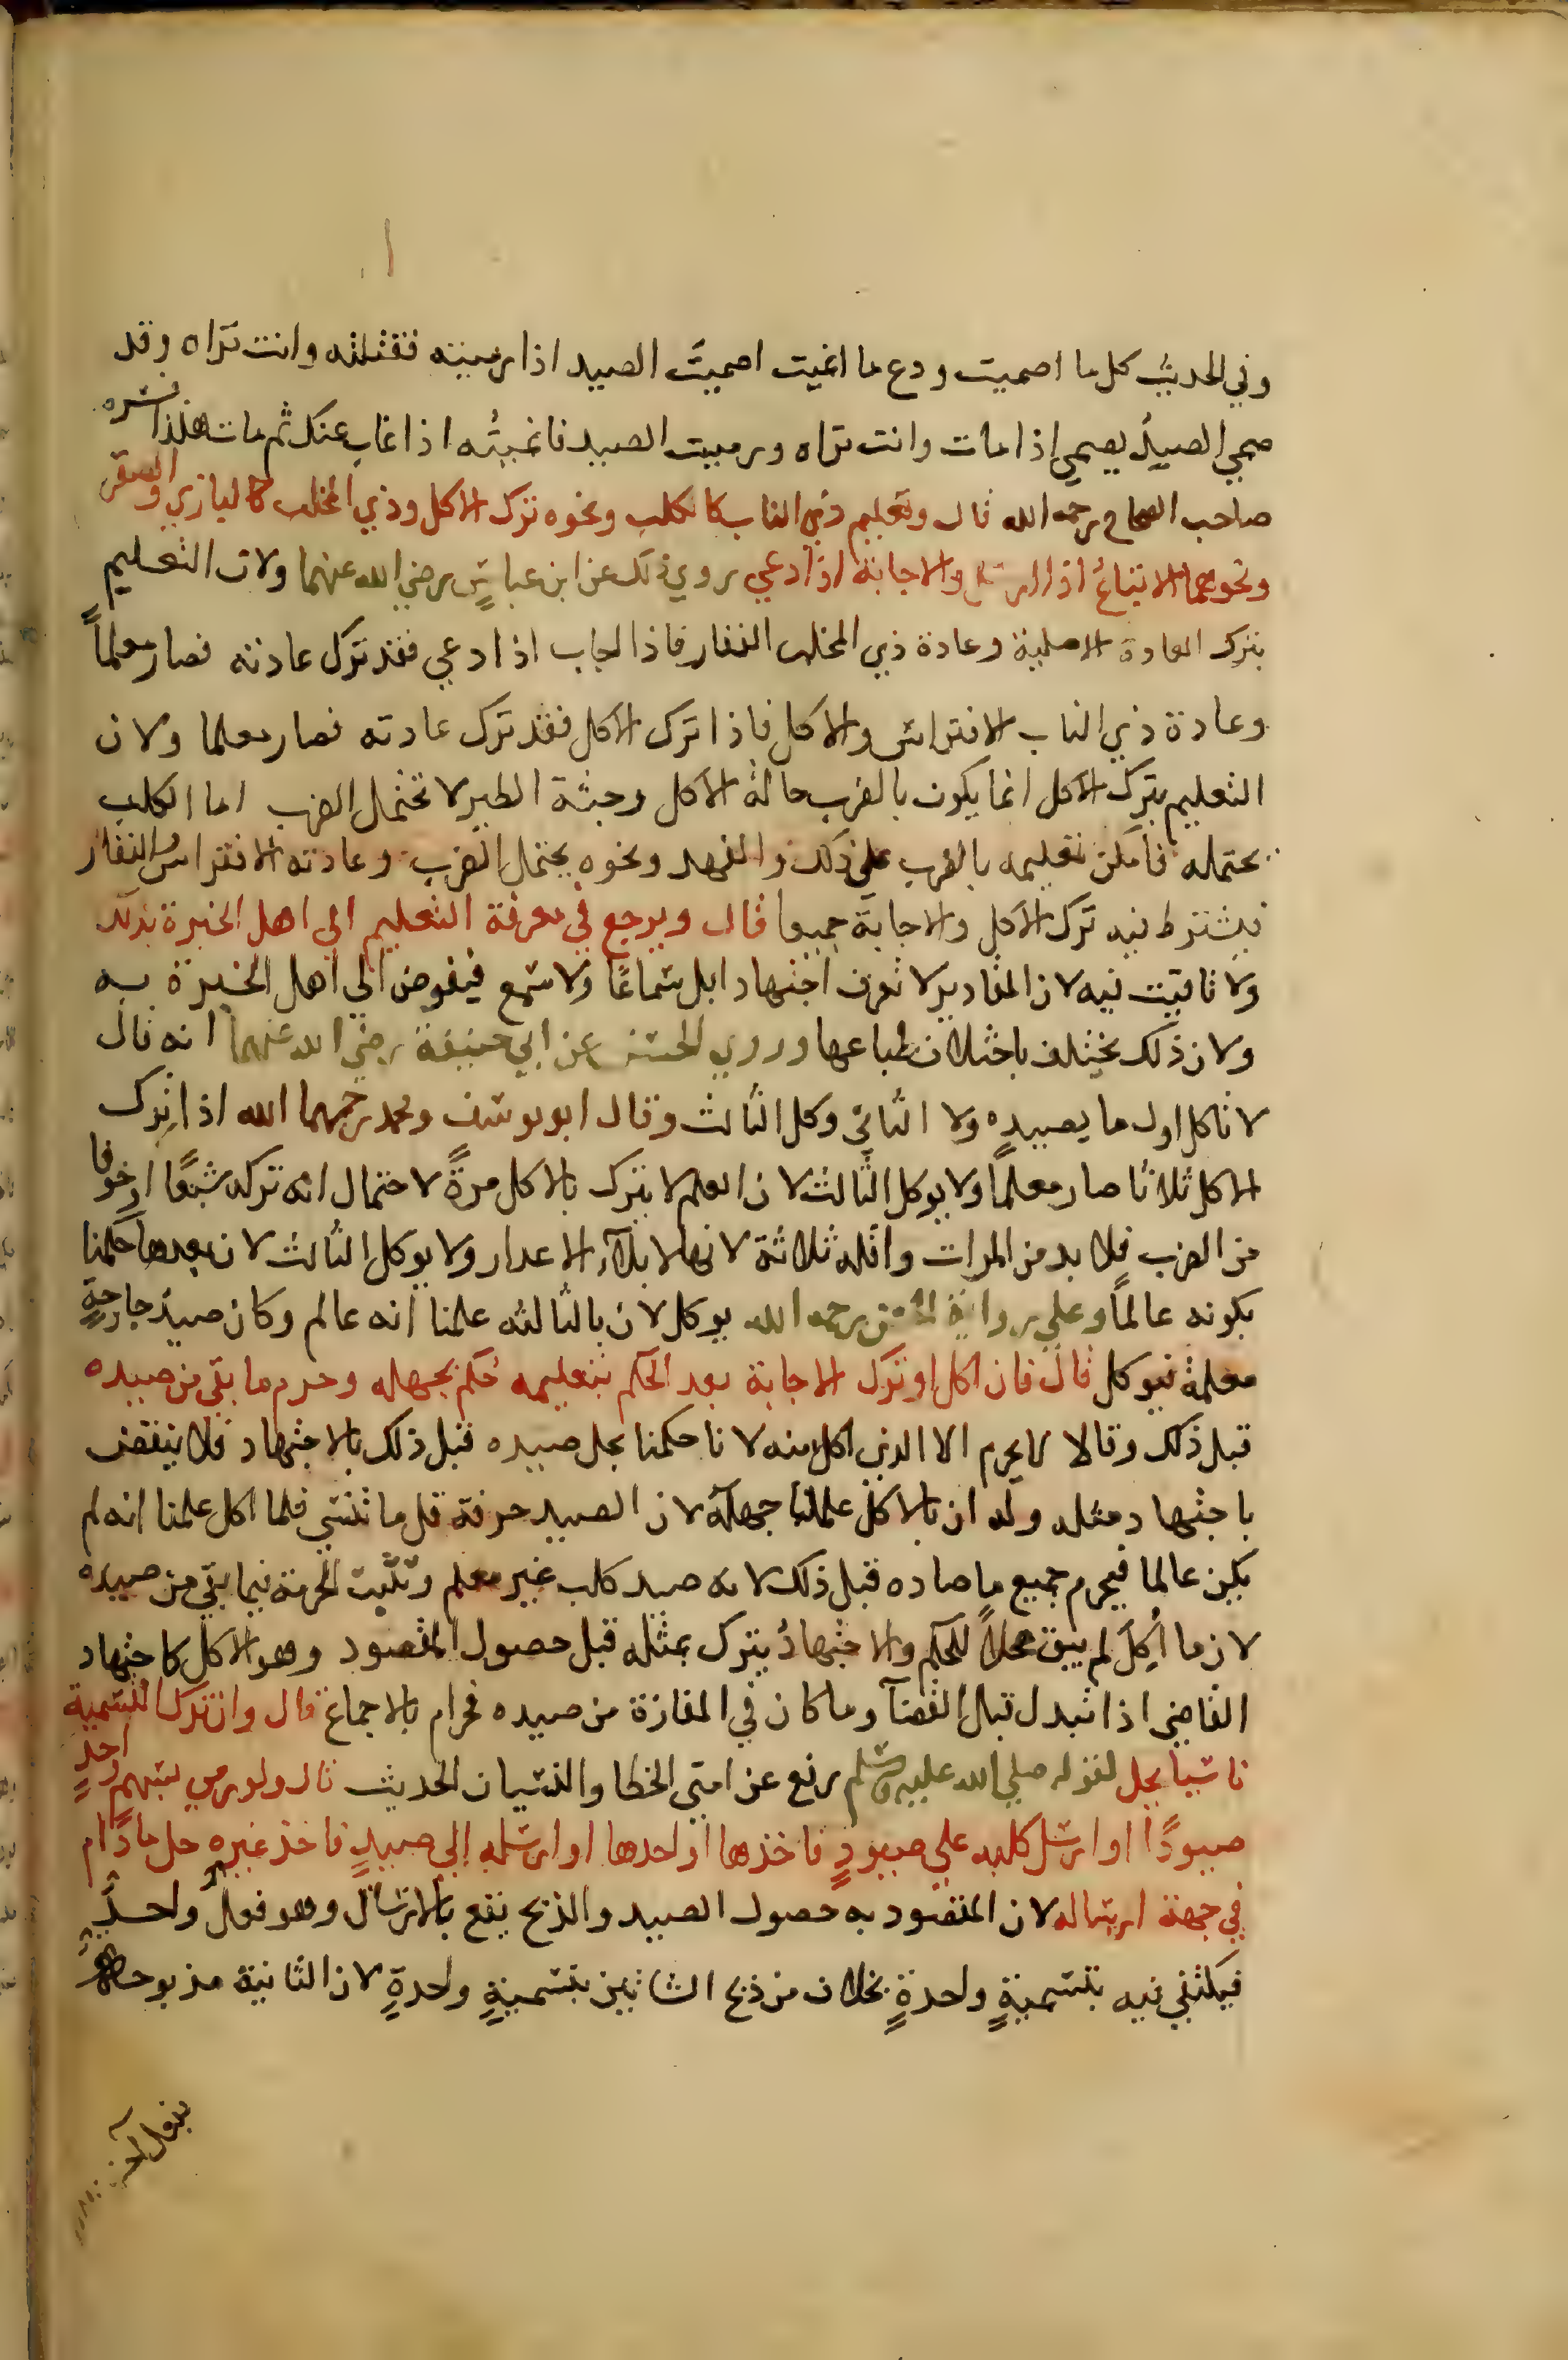 وفي الحديث كل ما اصميت ودع ما انميت اصميت الصيد اذا رميته فقتلته وانت تراه وقد
صمي الصيدُ يصمي اذا مات وانت تراه ورميت الصيد فانميتُه اذا غاب عنك ثم مات هكذا فسره
صاحب الصحاح رحمه الله قال وتعليم ذي الناب كالكلب ونحوه ترك الاكل وذي المخلب كالبازي والصقر
ونحوهما الاتباعُ اذا ارسل والاجابة اذا دعي روي ذلك عن ابن عباسٍ رضي الله عنهما ولان التعليم
بترك العادة الاصلية وعادة ذي المخلب النفار فاذا اجاب اذا دعي فقد ترك عادته فصار معلماً
وعادة ذي الناب الافتراس والاكل فاذا ترك الاكل فقد ترك عادته فصار معلما ولان
التعليم بترك الاكل انما يكون بالضرب حالة الاكل وجثة الطير لا تحتمل الضرب اما الكلب
يحتمله فامكن تعليمه بالضرب على ذلك والفهد ونحوه يحتمل الضرب وعادته الافتراس والنفار
فيشترط فيه ترك الاكل والاجابة جميعا قال ويرجع في معرفة التعليم الي اهل الخبرة بذلك
ولا تاقيت فيه لان المقادير لا تعرف اجتهادا بل سماعًا ولا سمع فيفوض الى اهل الخبرة به
ولان ذلك يختلف باختلاف طباعها وروي الحسن عن ابي حنيفة رضي الله عنهما انه قال
لا تاكل اول ما يصيده ولا الثاني وكل الثالث وقال ابو يوسف ومحمد رحمهما الله اذا ترك
الاكل ثلاثا صار معلماً ولا يوكل الثالث لان العلم لا يترك بالاكل مرةً لاحتمال انه تركه شبعًا او خوفا
من الضرب فلا بد من المرات واقله ثلاثة لانها لابلاء الاعذار ولا يوكل الثالث لان بعدها حكمنا
بكونه عالماً وعلي رواية الحسن رحمه الله يوكل لان بالثالثه علمنا انه عالم وكان صيد جارحةٍ
معلمة فيوكل قال فان اكل او ترك الاجابة بعد الحكم بتعليمه حكم بجهله وحرم ما بقي من صيده
قبل ذلك وقالا لا يحرم الا الذي اكل منه لانا حكمنا بحل صيده قبل ذلك بالاجتهاد فلا ينتقض
باجتهاد مثله وله ان بالاكل علمنا جهله لان الصيد حرفة قل ما تنسي فلما اكل علمنا انه لم
يكن عالما فيحرم جميع ما صاده قبل ذلك لانه صيد كلب غير معلم وتثبت الحرمة فيما بقي من صيده
لان ما اُكِلَ لم يبق محلاً للحكم والاجتهادُ يترك بمثله قبل حصول المقصود وهو الاكل كاجتهاد
القاضي اذا تبدل قبل القضآ وما كان في المفازة من صيده فحرام بالاجماع قال وان ترك التسمية
ناسيا يحل لقوله صلي الله عليه وسلم رفع عن امتي الخطا والنسيان الحديث قال ولو رمي بسهمٍ واحدٍ
صيودًا او ارسل كلبه علي صيودٍ فاخذها او احدها او ارسله إلي صيدٍ فاخذ غيره حل ما دام
في جهة ارساله لان المقصود به حصول الصيد والذبح يقع بالارسال وهو فعلٌ واحدٌ
فيكتفي فيه بتسميةٍ واحدةٍ بخلاف من ذبح الشاتين بتسميةٍ واحدةٍ لان الثانية مذبوحة
بفعل آخر